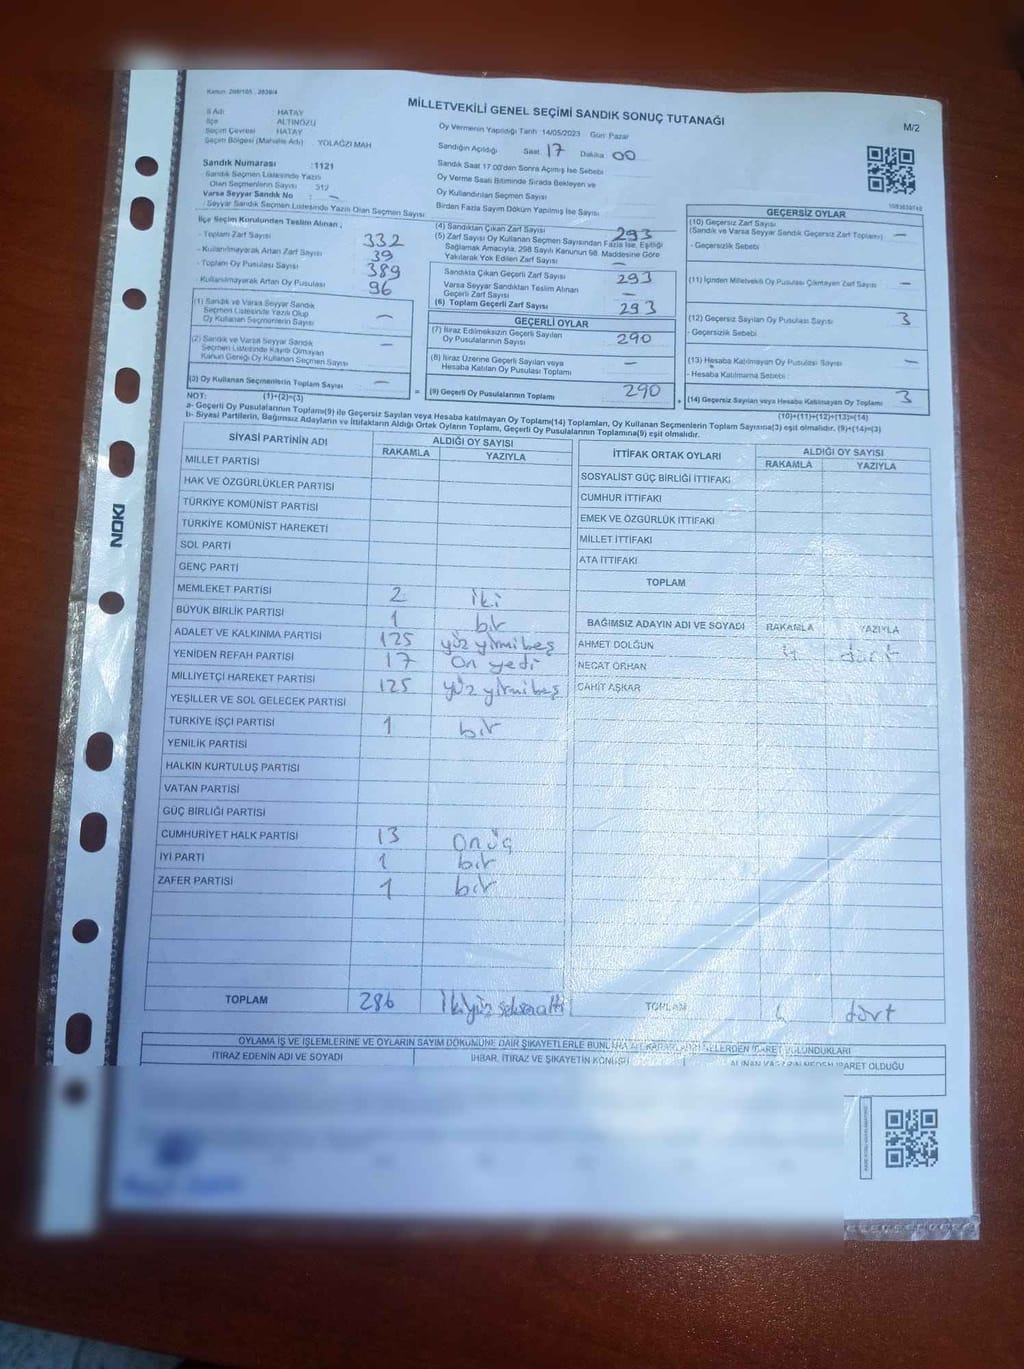 MİLLETVEKİLİ GENEL SEÇİMİ SANDIK SONUÇ TUTANAĞI
M/2
İl Adı HATAY
İlçe ALTINÖZÜ
Seçim Çevresi HATAY
Seçim Bölgesi (Mahalle Adı) YOLAĞZI MAH
Oy Vermenin Yapıldığı Tarih 14/05/2023 Gün: Pazar
Sandığın Açıldığı Saat 17 Dakika 00
Sandık Saat 17.00'den Sonra Açılmış İse Sebebi
Oy Verme Saati Bitiminde Sırada Bekleyen ve
Oy Kullandırılan Seçmen Sayısı
Birden Fazla Sayım Döküm Yapılmış İse Sayısı
Sandık Numarası :1121
Sandık Seçmen Listesinde Yazılı
Olan Seçmenlerin Sayısı 312
Varsa Seyyar Sandık No : -
Seyyar Sandık Seçmen Listesinde Yazılı Olan Seçmen Sayısı
İlçe Seçim Kurulundan Teslim Alınan ,
- Toplam Zarf Sayısı 332
- Kullanılmayarak Artan Zarf Sayısı 39
- Toplam Oy Pusulası Sayısı 389
- Kullanılmayarak Artan Oy Pusulası 96
(1) Sandık ve Varsa Seyyar Sandık
Seçmen Listesinde Yazılı Olup
Oy Kullanan Seçmenlerin Sayısı -
(2) Sandık ve Varsa Seyyar Sandık
Seçmen Listesinde Kayıtlı Olmayan
Kanun Gereği Oy Kullanan Seçmen Sayısı -
(3) Oy Kullanan Seçmenlerin Toplam Sayısı -
(1)+(2)=(3)
(4) Sandıktan Çıkan Zarf Sayısı 293
(5) Zarf Sayısı Oy Kullanan Seçmen Sayısından Fazla İse, Eşitliği
Sağlamak Amacıyla, 298 Sayılı Kanunun 98. Maddesine Göre
Yakılarak Yok Edilen Zarf Sayısı -
Sandıkta Çıkan Geçerli Zarf Sayısı 293
Varsa Seyyar Sandıktan Teslim Alınan
Geçerli Zarf Sayısı -
(6) Toplam Geçerli Zarf Sayısı 293
GEÇERLİ OYLAR
(7) İtiraz Edilmeksizin Geçerli Sayılan
Oy Pusulalarının Sayısı 290
(8) İtiraz Üzerine Geçerli Sayılan veya
Hesaba Katılan Oy Pusulası Toplamı -
= (9) Geçerli Oy Pusulalarının Toplamı 290
GEÇERSİZ OYLAR
(10) Geçersiz Zarf Sayısı
(Sandık ve Varsa Seyyar Sandık Geçersiz Zarf Toplamı) -
- Geçersizlik Sebebi
(11) İçinden Milletvekili Oy Pusulası Çıkmayan Zarf Sayısı -
(12) Geçersiz Sayılan Oy Pusulası Sayısı 3
- Geçersizlik Sebebi :
(13) Hesaba Katılmayan Oy Pusulası Sayısı -
- Hesaba Katılmama Sebebi :
+ (14) Geçersiz Sayılan veya Hesaba Katılmayan Oy Toplamı 3
(10)+(11)+(12)+(13)=(14)
NOT:
a- Geçerli Oy Pusulalarının Toplamı(9) ile Geçersiz Sayılan veya Hesaba katılmayan Oy Toplamı(14) Toplamları, Oy Kullanan Seçmenlerin Toplam Sayısına(3) eşit olmalıdır. (9)+(14)=(3)
b- Siyasi Partilerin, Bağımsız Adayların ve İttifakların Aldığı Ortak Oyların Toplamı, Geçerli Oy Pusulalarının Toplamına(9) eşit olmalıdır.
SİYASİ PARTİNİN ADI ALDIĞI OY SAYISI
RAKAMLA YAZIYLA
MİLLET PARTİSİ
HAK VE ÖZGÜRLÜKLER PARTİSİ
TÜRKİYE KOMÜNİST PARTİSİ
TÜRKİYE KOMÜNİST HAREKETİ
SOL PARTİ
GENÇ PARTİ
MEMLEKET PARTİSİ 2 iki
BÜYÜK BİRLİK PARTİSİ 1 bir
ADALET VE KALKINMA PARTİSİ 125 yüz yirmi beş
YENİDEN REFAH PARTİSİ 17 On yedi
MİLLİYETÇİ HAREKET PARTİSİ 125 yüz yirmi beş
YEŞİLLER VE SOL GELECEK PARTİSİ
TÜRKİYE İŞÇİ PARTİSİ 1 bir
YENİLİK PARTİSİ
HALKIN KURTULUŞ PARTİSİ
VATAN PARTİSİ
GÜÇ BİRLİĞİ PARTİSİ
CUMHURİYET HALK PARTİSİ 13 On üç
İYİ PARTİ 1 bir
ZAFER PARTİSİ 1 bir
TOPLAM 286 İkiyüz seksenaltı
İTTİFAK ORTAK OYLARI ALDIĞI OY SAYISI
RAKAMLA YAZIYLA
SOSYALİST GÜÇ BİRLİĞİ İTTİFAKI
CUMHUR İTTİFAKI
EMEK VE ÖZGÜRLÜK İTTİFAKI
MİLLET İTTİFAKI
ATA İTTİFAKI
TOPLAM
BAĞIMSIZ ADAYIN ADI VE SOYADI RAKAMLA YAZIYLA
AHMET DOLĞUN 4 dört
NECAT ORHAN
CAHİT AŞKAR
TOPLAM 4 dört
OYLAMA İŞ VE İŞLEMLERİNE VE OYLARIN SAYIM DÖKÜMÜNE DAİR ŞİKAYETLERLE
İTİRAZ EDENİN ADI VE SOYADI İHBAR, İTİRAZ VE ŞİKAYETİN KONUSU
NOKI